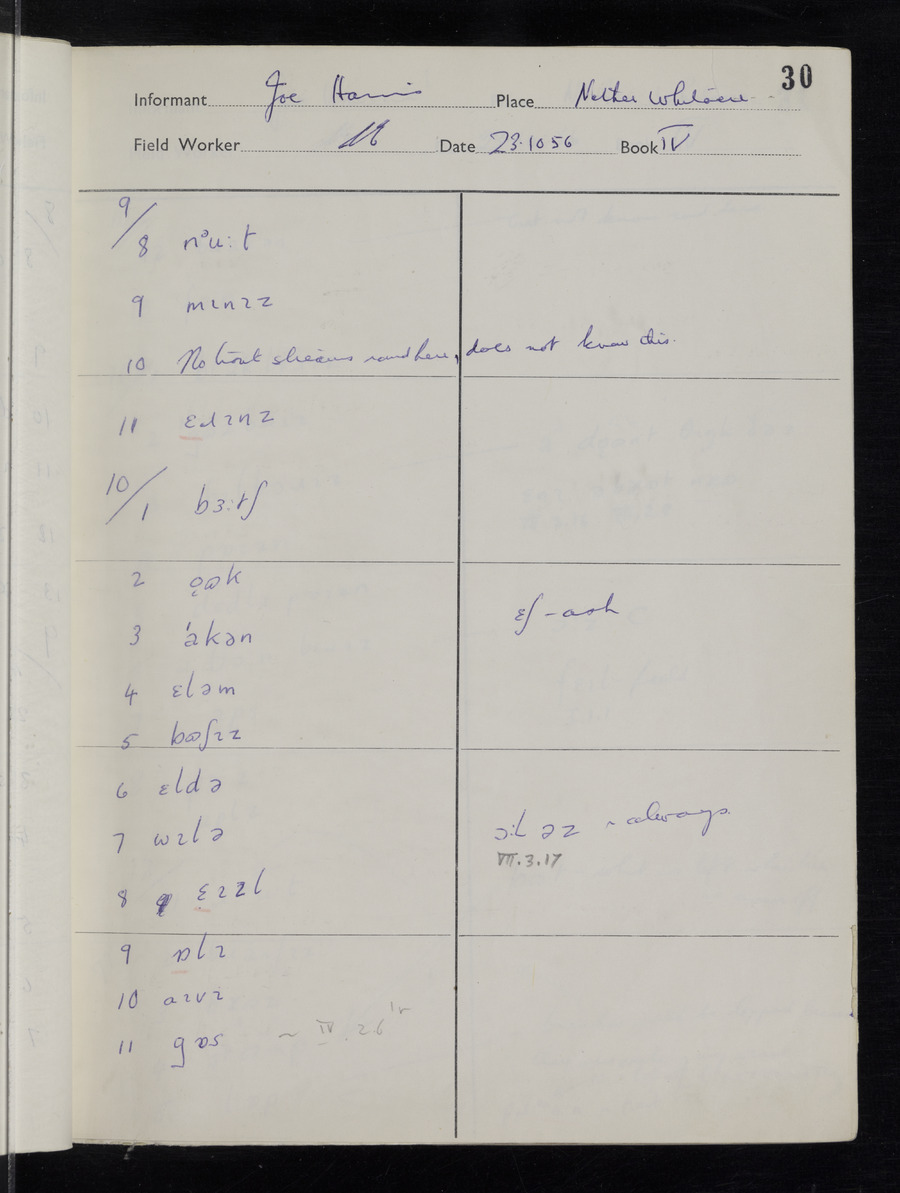 30
Informant Joe Harris Place Nether Whitacre
Field Worker Date 23.10 56 Book IV
9/8 nᵊu:t
9 mɪnɪz
10 No trout streams round here, does not know this.
11 ɛɹɪnz
10/1 bɜ:tʃ
2 k
ɛʃ - ash
3 ákən
4 ɛləm
5 ʃɪz
6 ɛldə
7 wɪlə
ɔ:l əz ~ always.
VII.3.17
8 ɛɪzl
9 ɒlɪ
10 aɪvɪ
11 gɒs ~ IV. 26